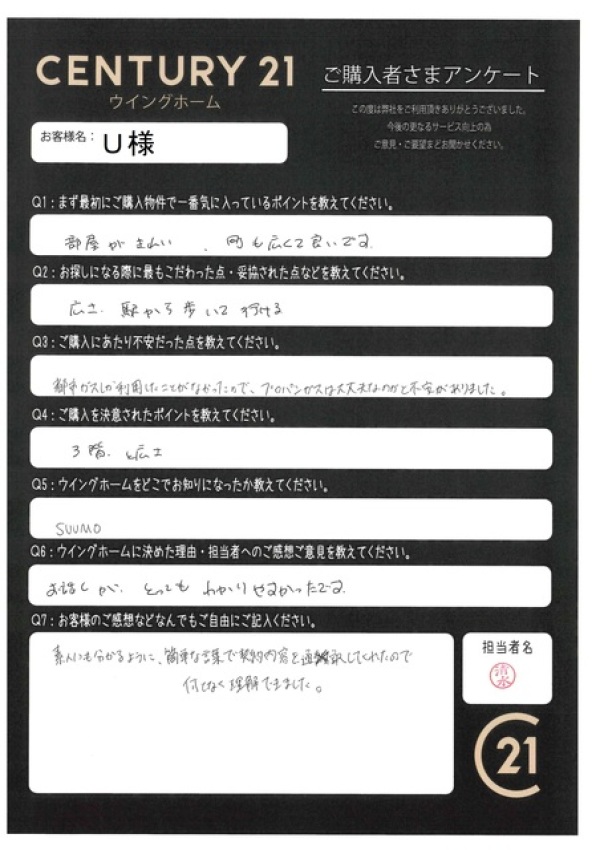 CENTURY 21
ウイングホーム
ご購入者さまアンケート
この度は弊社をご利用頂きありがとうございました。
今後の更なるサービス向上の為
ご意見・ご要望までお聞かせください。
お客様名：
U様
Q1：まず最初にご購入物件で一番気に入っているポイントを教えてください。
部屋がきれい、 間も広くて良いです。
Q2：お探しになる際に最もこだわった点・妥協された点などを教えてください。
広さ. 駅から歩いて行ける
Q3：ご購入にあたり不安だった点を教えてください。
都市ガスしか利用したことがなかったので、プロパンガスは大丈夫なのかと不安がありました。
Q4：ご購入を決意されたポイントを教えてください。
3階. と広さ
Q5：ウイングホームをどこでお知りになったか教えてください。
SUUMO
Q6：ウイングホームに決めた理由・担当者へのご感想ご意見を教えてください。
お話しが、とってもわかりやすかったです。
Q7：お客様のご感想などなんでもご自由にご記入ください。
素人にも分かるように、簡単な言葉で契約内容を通訳してくれたので
何となく理解できました。
担当者名
清水
21